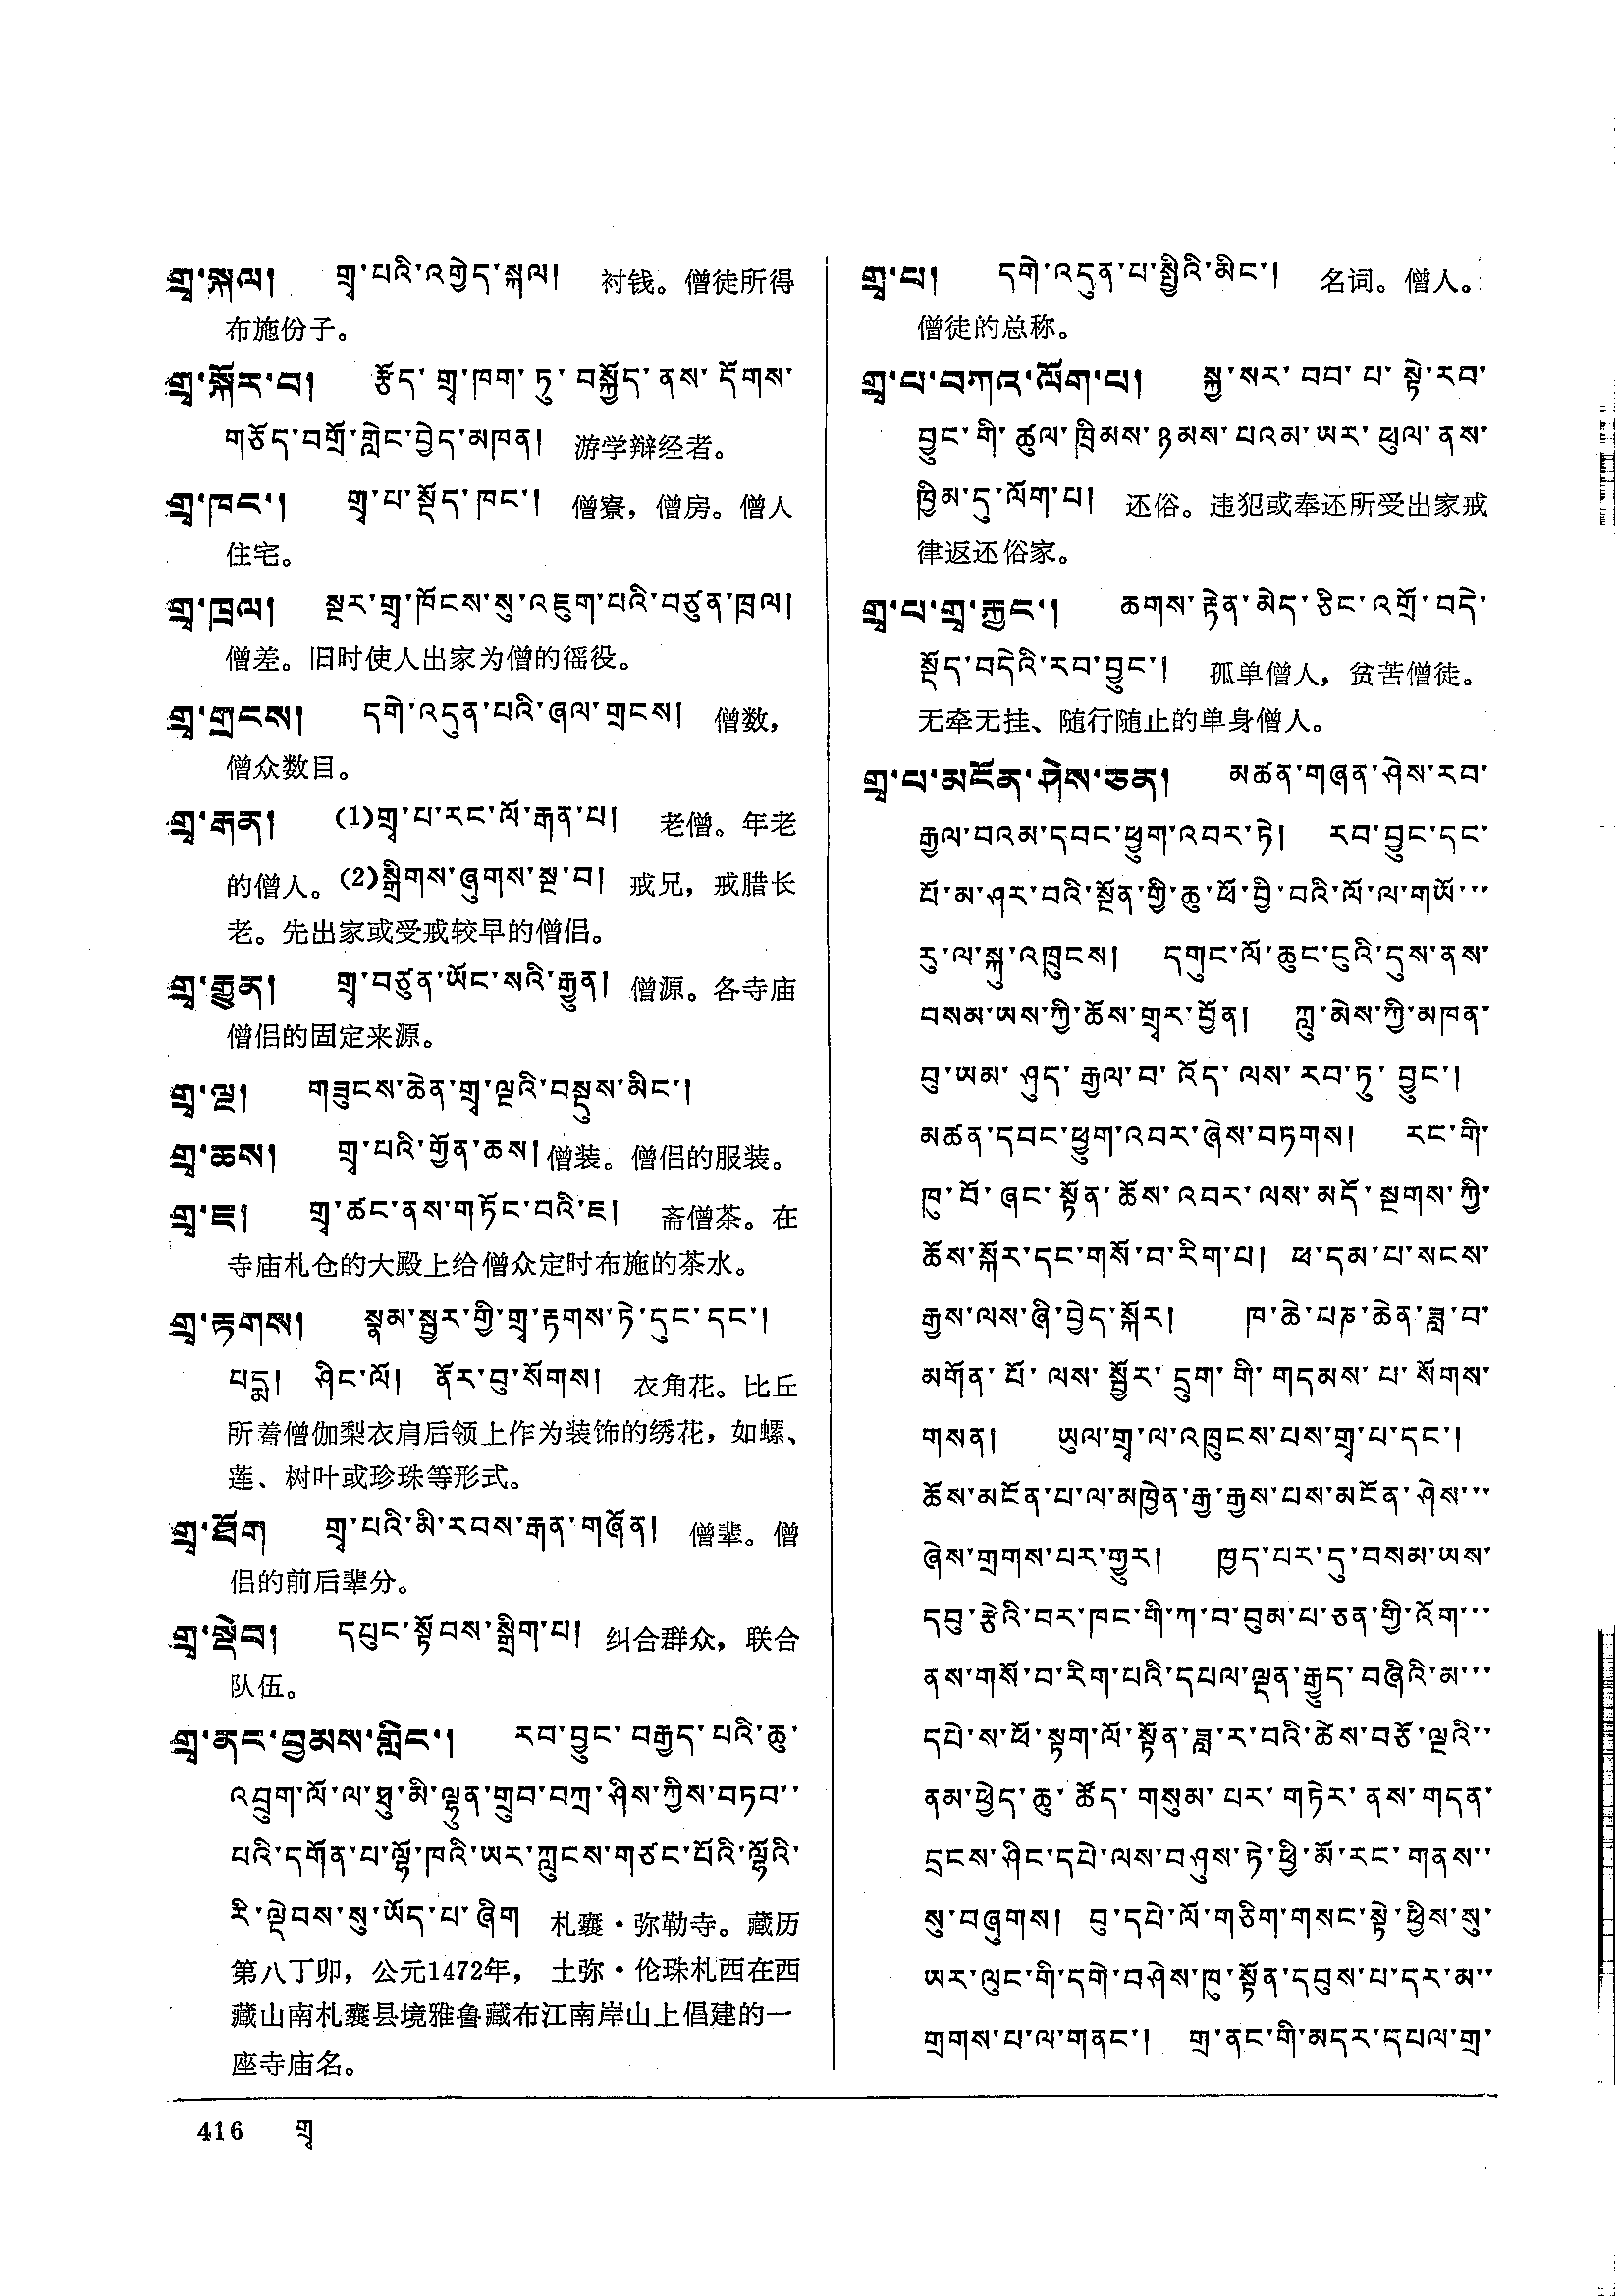 གྲྭ་སྐལ། གྲྭ་པའི་འགྱེད་སྐལ། 衬钱。僧徒所得
布施份子。
གྲྭ་སྐོར་བ། རྩོད་གྲྭ་ཁག་ཏུ་བསྐྱོད་ནས་དོགས་
གཅོད་བགྲོ་གླེང་བྱེད་མཁན། 游学辩经者。
གྲྭ་ཁང་། གྲྭ་པ་སྡོད་ཁང་། 僧寮，僧房。僧人
住宅。
གྲྭ་ཁྲལ། སྔར་གྲྭ་ཁོངས་སུ་འཇུག་པའི་བཙུན་ཁྲལ།
僧差。旧时使人出家为僧的徭役。
གྲྭ་གྲངས། དགེ་འདུན་པའི་ཞལ་གྲངས། 僧数，
僧众数目。
གྲྭ་རྒན། (1)གྲྭ་པ་རང་ལོ་རྒན་པ། 老僧。年老
的僧人。(2)སྒྲིགས་ཞུགས་སྔ་བ། 戒兄，戒腊长
老。先出家或受戒较早的僧侣。
གྲྭ་རྒྱུན། གྲྭ་བཙུན་ཡོང་སའི་རྒྱུན། 僧源。各寺庙
僧侣的固定来源。
གྲྭ་ལྔ། གཟུངས་ཆེན་གྲྭ་ལྔའི་བསྡུས་མིང་།
གྲྭ་ཆས། གྲྭ་པའི་གྱོན་ཆས། 僧装。僧侣的服装。
གྲྭ་ཇ། གྲྭ་ཚང་ནས་གཏོང་བའི་ཇ། 斋僧茶。在
寺庙札仓的大殿上给僧众定时布施的茶水。
གྲྭ་རྟགས། སྣམ་སྦྱར་གྱི་གྲྭ་རྟགས་ཏེ་དུང་དང་།
པདྨ། ཤིང་ལོ། ནོར་བུ་སོགས། 衣角花。比丘
所着僧伽梨衣肩后领上作为装饰的绣花，如螺、
莲、树叶或珍珠等形式。
གྲྭ་ཐོག གྲྭ་པའི་མི་རབས་རྒན་གཞོན། 僧辈。僧
侣的前后辈分。
གྲྭ་སྡེབ། དཔུང་སྟོབས་སྒྲིག་པ། 纠合群众，联合
队伍。
གྲྭ་ནང་བྱམས་གླིང་། རབ་བྱུང་བརྒྱད་པའི་ཆུ་
འབྲུག་ལོ་ལ་ཐུ་མི་ལྷུན་གྲུབ་བཀྲ་ཤིས་ཀྱིས་བཏབ་་
པའི་དགོན་པ་ལྷོ་ཁའི་ཡར་ཀླུངས་གཙང་པོའི་ལྷོའི་
རི་ལྡེབས་སུ་ཡོད་པ་ཞིག 札囊·弥勒寺。藏历
第八丁卯，公元1472年， 土弥·伦珠札西在西
藏山南札囊县境雅鲁藏布江南岸山上倡建的一
座寺庙名。
གྲྭ་པ། དགེ་འདུན་པ་སྤྱིའི་མིང་། 名词。僧人。
僧徒的总称。
གྲྭ་པ་བཀའ་ལོག་པ། སྐྱ་སར་བབ་པ་སྟེ་རབ་
བྱུང་གི་ཚུལ་ཁྲིམས་ཉམས་པའམ་ཡར་ཕུལ་ནས་
ཁྱིམ་དུ་ལོག་པ། 还俗。违犯或奉还所受出家戒
律返还俗家。
གྲྭ་པ་གྲྭ་རྐྱང་། ཆགས་རྟེན་མེད་ཅིང་འགྲོ་བདེ་
སྡོད་བདེའི་རབ་བྱུང་། 孤单僧人，贫苦僧徒。
无牵无挂、随行随止的单身僧人。
གྲྭ་པ་མངོན་ཤེས་ཅན། མཚན་གཞན་ཤེས་རབ་
རྒྱལ་བའམ་དབང་ཕྱུག་འབར་ཏེ། རབ་བྱུང་དང་
པོ་མ་ཤར་བའི་སྔོན་གྱི་ཆུ་ཕོ་བྱི་བའི་ལོ་ལ་གཡོ་་་
རུ་ལ་སྐུ་འཁྲུངས། དགུང་ལོ་ཆུང་ངུའི་དུས་ནས་
བསམ་ཡས་ཀྱི་ཆོས་གྲྭར་བྱོན། ཀླུ་མེས་ཀྱི་མཁན་
བུ་ཡམ་ཤུད་རྒྱལ་བ་འོད་ལས་རབ་ཏུ་བྱུང་།
མཚན་དབང་ཕྱུག་འབར་ཞེས་བཏགས། རང་གི་
ཁུ་བོ་ཞང་སྟོན་ཆོས་འབར་ལས་མདོ་སྔགས་ཀྱི་
ཆོས་སྐོར་དང་གསོ་བ་རིག་པ། ཕ་དམ་པ་སངས་
རྒྱས་ལས་ཞི་བྱེད་སྐོར། ཁ་ཆེ་པཎ་ཆེན་ཟླ་བ་
མགོན་པོ་ལས་སྦྱོར་དྲུག་གི་གདམས་པ་སོགས་
གསན། ཡུལ་གྲྭ་ལ་འཁྲུངས་པས་གྲྭ་པ་དང་།
ཆོས་མངོན་པ་ལ་མཁྱེན་རྒྱ་རྒྱས་པས་མངོན་ཤེས་་་
ཞེས་གྲགས་པར་གྱུར། ཁྱད་པར་དུ་བསམ་ཡས་
དབུ་རྩེའི་བར་ཁང་གི་ཀ་བ་བུམ་པ་ཅན་གྱི་འོག་་་
ནས་གསོ་བ་རིག་པའི་དཔལ་ལྡན་རྒྱུད་བཞིའི་མ་་་
དཔེ་ས་ཕོ་སྟག་ལོ་སྟོན་ཟླ་ར་བའི་ཚེས་བཅོ་ལྔའི་་
ནམ་ཕྱེད་ཆུ་ཚོད་གསུམ་པར་གཏེར་ནས་གདན་
དྲངས་ཤིང་དཔེ་ལས་བཤུས་ཏེ་ཕྱི་མོ་རང་གནས་་
སུ་བཞུགས། བུ་དཔེ་ལོ་གཅིག་གསང་སྟེ་ཕྱིས་སུ་
ཡར་ལུང་གི་དགེ་བཤེས་ཁུ་སྟོན་དབུས་པ་དར་མ་་
གྲགས་པ་ལ་གནང་། གྲ་ནང་གི་མདར་དཔལ་གྲ་
416 གྲྭ